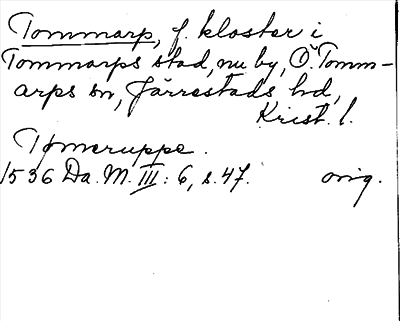 Tommarp, f. kloster i
Tommarps stad, nu by, Ö. Tomm-
arps sn, Järrestads hd,
Krist. l.
Tømeruppe.
1536 Da. M. III: 6, s. 47. orig.